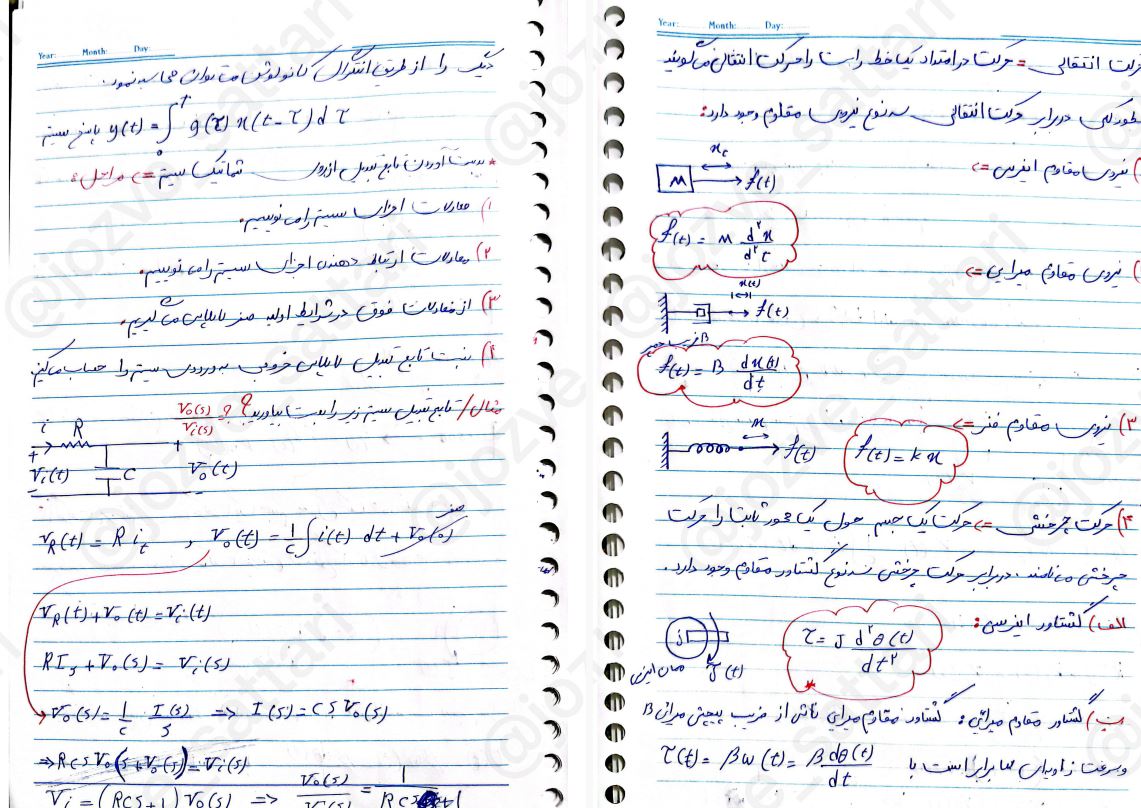 Year: Month: Day:
دیگر را از طریق انتگرال کانولوشن می‌توان محاسبه نمود.
y(t) = ∫₀ᵗ g(τ) x(t-τ) dτ پاسخ سیستم
* بدست آوردن تابع تبدیل از روی شماتیک سیستم => مراحل:
۱) معادلات اجزاء سیستم را می نویسیم.
۲) معادلات ارتباط دهنده اجزاء سیستم را می نویسیم.
۳) از معادلات فوق در شرایط اولیه صفر لاپلاس می گیریم.
۴) نسبت تابع تبدیل لاپلاس خروجی به ورودی سیستم را حساب می‌کنیم
مثال/ تابع تبدیل سیستم زیر را بدست بیاورید؟ Vo(s)/Vi(s) = ?
i R
+ +
Vi(t) C Vo(t)
- -
V_R(t) = R i_t , Vo(t) = 1/c ∫ i(t) dt + Vo(0) صفر
V_R(t) + Vo(t) = Vi(t)
RI_s + Vo(s) = Vi(s)
Vo(s) = 1/c I(s)/s => I(s) = CS Vo(s)
=> RCS Vo(s) + Vo(s) = Vi(s)
Vi = (RCS+1) Vo(s) => Vo(s)/Vi(s) = 1/RCS+1
Year: Month: Day:
حرکت انتقالی = حرکت در امتداد یک خط راست را حرکت انتقالی می‌گویند
بطور کلی در برابر حرکت انتقالی سه نوع نیروی مقاوم وجود دارد:
) نیروی مقاوم اینرسی =>
x_t
M f(t)
f(t) = M d²x/d²t
) نیروی مقاوم میرایی =>
x(t)
f(t)
B ضریب
f(t) = B dx(t)/dt
۳) نیروی مقاوم فنر =>
x
f(t)
f(t) = kx
۴) حرکت چرخشی => حرکت یک جسم حول یک محور ثابت را حرکت
چرخشی می نامند. در برابر حرکت چرخشی سه نوع گشتاور مقاوم وجود دارد.
الف) گشتاور اینرسی:
J
τ(t)
ممان اینرسی
τ = J d²θ(t)/dt²
ب) گشتاور مقاوم میرائی: گشتاور مقاوم میرایی ناشی از ضریب پیچشی میرائی B
و سرعت زاویه‌ای ها برابر است با τ(t) = βω(t) = β dθ(t)/dt